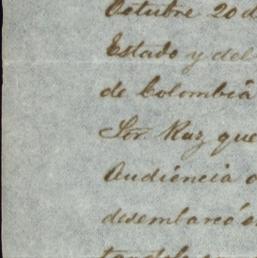 Octubre 20 d
Estado y del
de Colombia
Sor. Ruz, que
Audiencia
desembarcó e